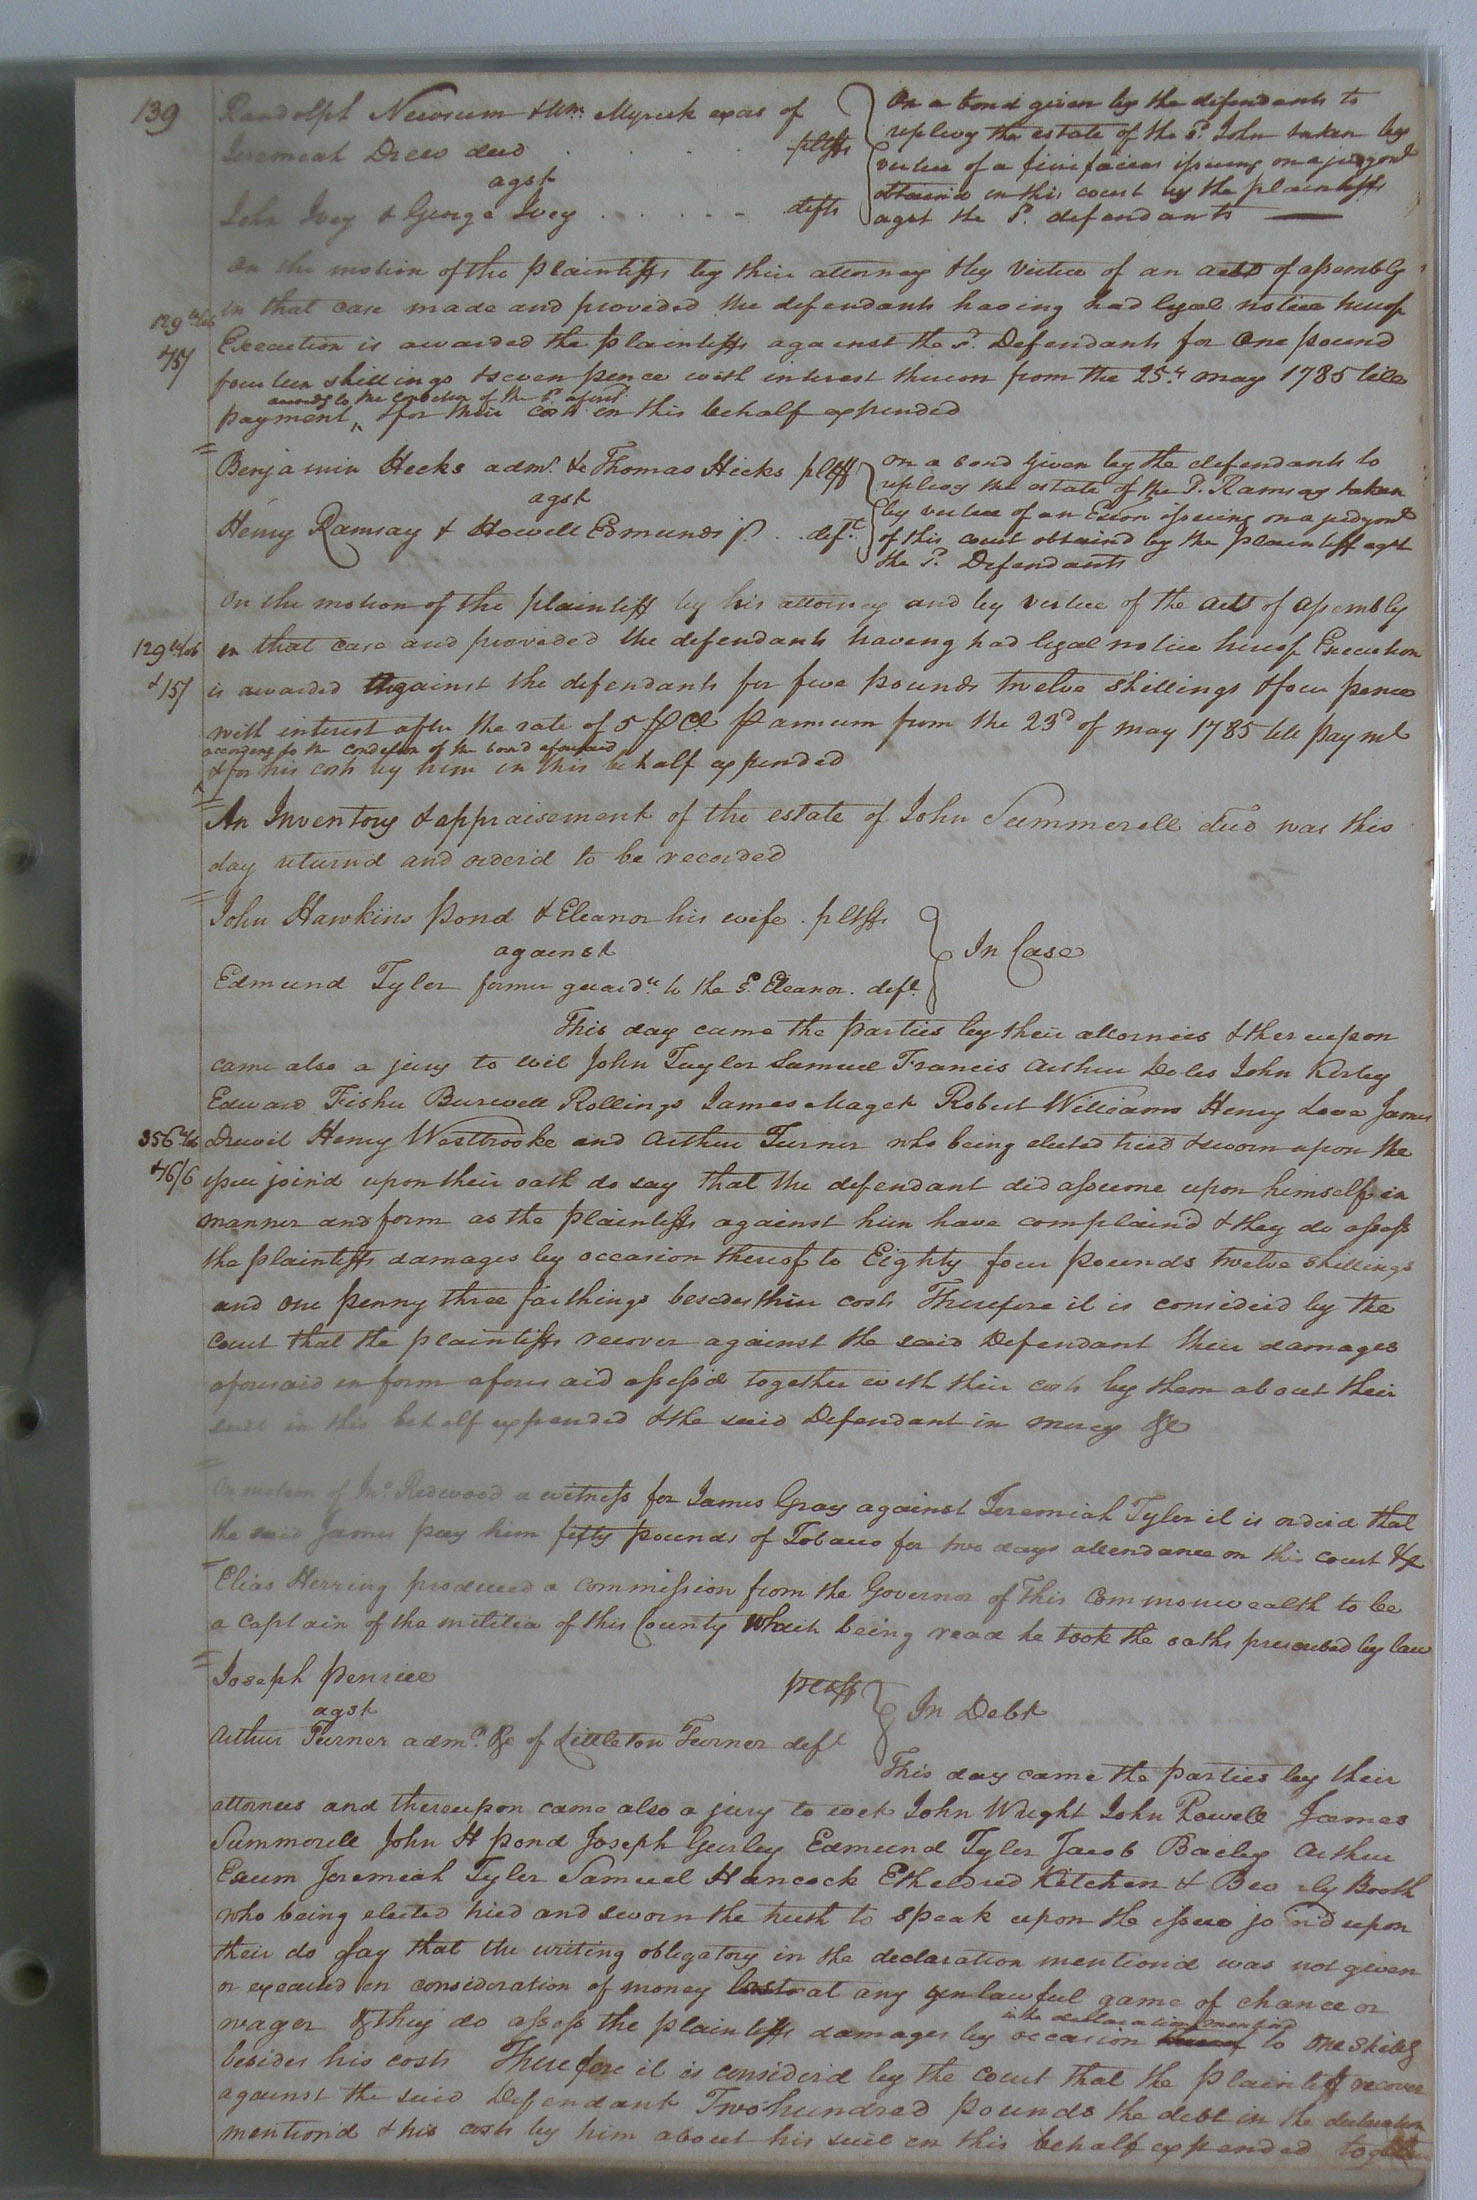 139
Randolph Newsum & Wm. Myrick exors of
Jeremiah Drew decd . . . . pltffs
agst
John Ivey & George Ivey . . . . . . defts
On a bond given by the defendants to
replevy the estate of the sd. John taken by
vertue of a fieri facias issuing on a judgmt
obtained in this court by the plaintiffs
agst the sd. defendants
On the motion of the plaintiffs by their attorney & by Vertue of an act of assembly
in that case made and provided the defendants having had legal notice hereof
Execution is awarded the plaintiffs against the sd. Defendants for One pound
fourteen shillings & seven pence with interest thereon from the 25th may 1785 till
accordg to the Condition of the sd. aforesd
payment & for their costs in this behalf expended
129
&15/
Benjamin Hicks admr. &c Thomas Hicks pltff
agst
Henry Ramsay & Howell Edmunds jr. . . deft
On a bond given by the defendants to
replevy the estate of the sd. Ramsay taken
by vertue of an Exion issuing on a judgmt
of this court obtaind by the plaintiff agst
the sd. Defendants
On the motion of the plaintiff by his attorney and by vertue of the act of assembly
in that case and provided the defendants having had legal notice hereof Execution
is awarded against the defendants for five pounds twelve shillings & four pence
with interest after the rate of 5 p Ct. p annum from the 23d of may 1785 till paymt
according to the Condition of the bond aforesaid
& for his costs by him in this behalf expended
129
&15/
An Inventory & appraisement of the estate of John Summerell decd was this
day returnd and orderd to be recorded
John Hawkins Pond & Eleanor his wife . pltffs
against
Edmund Tyler former guardn. to the sd. Eleanor . deft.
In Case
This day came the parties by their attornies & thereupon
came also a jury to wit John Taylor Samuel Francis Arthur Doles John Kirby
Edward Fisher Burwell Rollings James Maget Robert Williams Henry Love James
Drewit Henry Westbrooke and Arthur Turner who being elected tried & sworn upon the
issue join'd upon their oath do say that the defendant did assume upon himself in
manner and form as the plaintiffs against him have complain'd & they do assess
the plaintiffs damages by occasion thereof to Eighty four pounds twelve shillings
and one penny three farthings besides their costs Therefore it is considerd by the
Court that the plaintiffs recover against the said Defendant their damages
aforesaid in form aforesaid assess'd together with their costs by them about their
suit in this behalf expended & the said Defendant in mercy &c
356
&76/6
On motion of Jno. Redwood a witness for James Gray against Jeremiah Tyler it is orderd that
the said James pay him fifty pounds of Tobacco for two days attendance on this court &c
Elias Herring produced a commission from the Governor of this commonwealth to be
a captain of the militia of this County which being read he took the oaths prescribed by law
Joseph Denson
agst
Arthur Turner admr. &c of Littleton Turner deft
pltff
In Debt
This day came the parties by their
attornies and thereupon came also a jury to wit John Wright John Powell James
Summerell John H Pond Joseph Gurley Edmund Tyler Jacob Bailey Arthur
Exum Jeremiah Tyler Samuel Hancock Etheldred Kitchen & Bev ly Booth
who being elected tried and sworn the truth to speak upon the issue join'd upon
their do say that the writing obligatory in the declaration mention'd was not given
or executed in consideration of money lost at any unlawful game of chance or
in the declaration mentiond
wager & they do assess the plaintiffs damages by occasion to one shillg
besides his costs Therefore it is considerd by the court that the plaintiff recover
against the said Defendant Two hundred pounds the debt in the declaration
mention'd & his costs by him about his suit in this behalf expended together